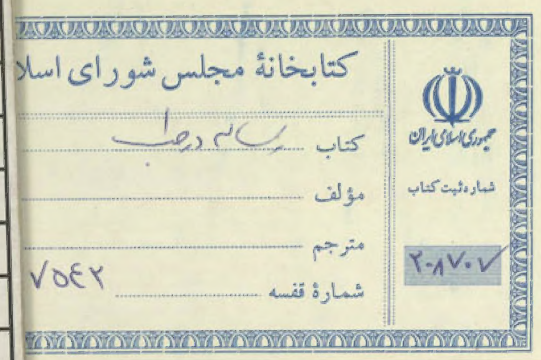 کتابخانهٔ مجلس شورای اسلا
کتاب رساله در
مؤلف
مترجم
شمارهٔ قفسه ۷۵۴۲
جمهوری اسلامی ایران
شماره ثبت کتاب
۲۰۸۷۰۷